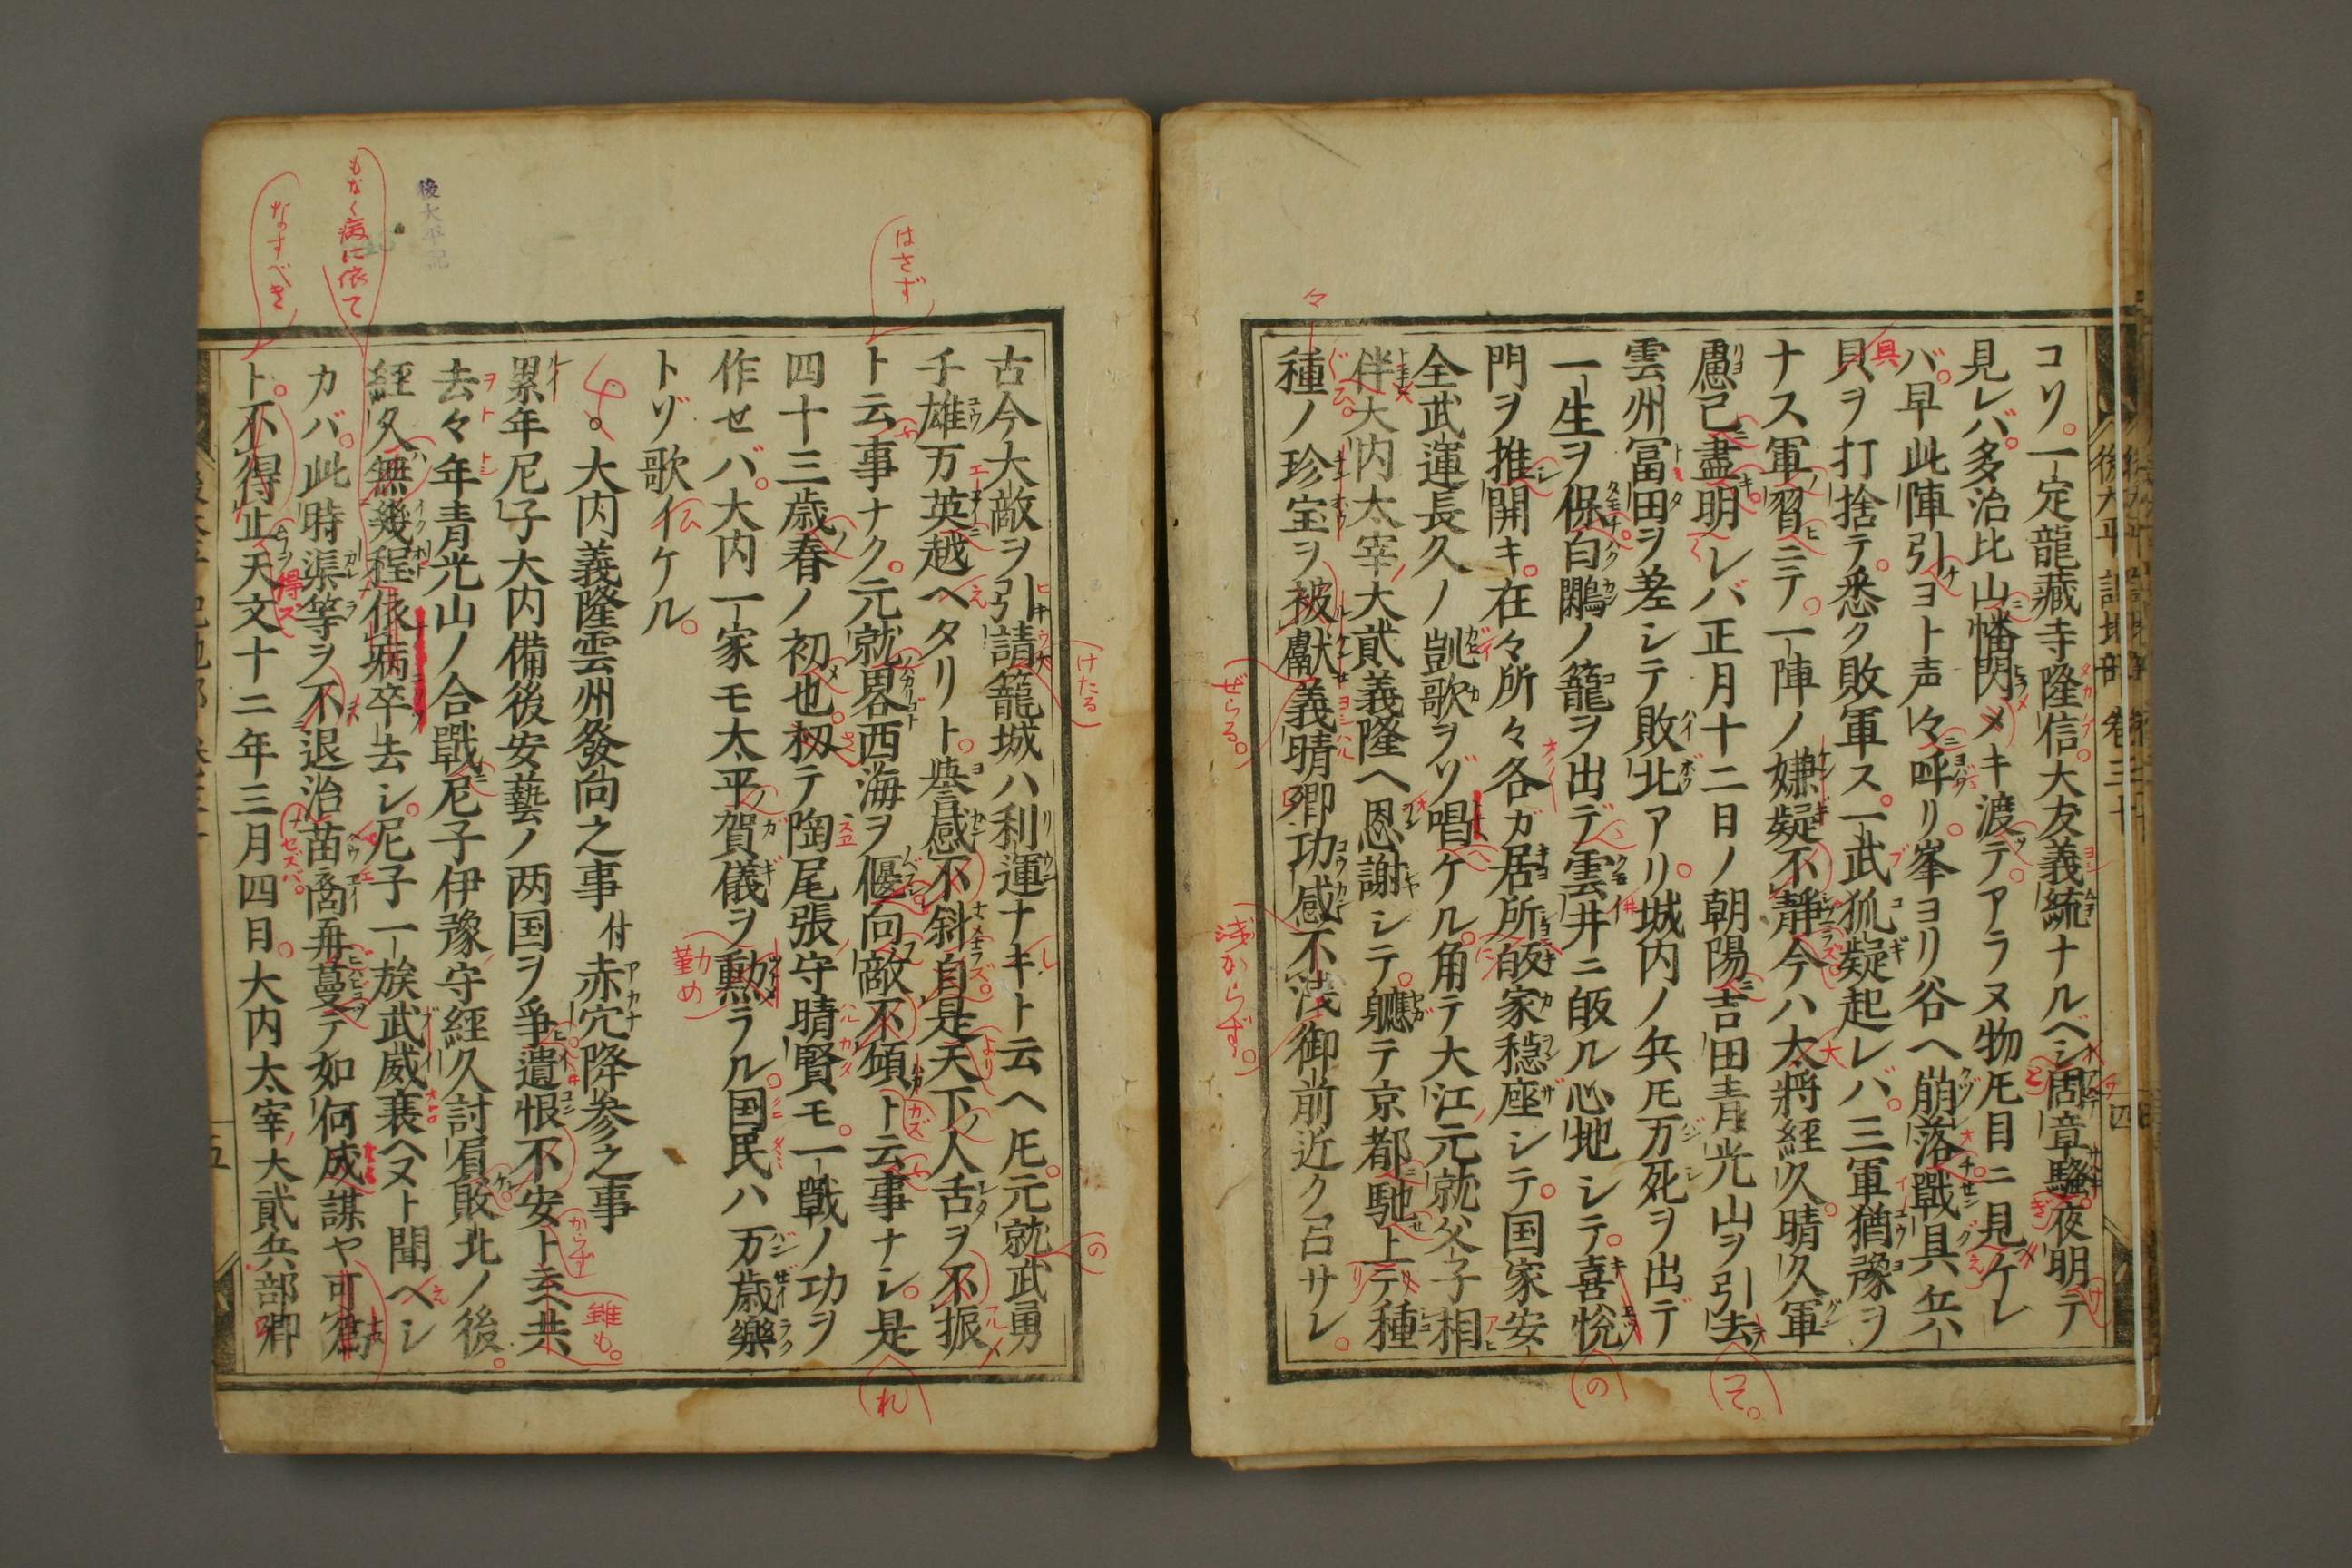 コリ。一定龍藏寺隆信大友義統ナルベシ周章騒夜明テ
見レバ。多治比山幡閃メキ渡テ。アラヌ物ドモ目ニ見ケレ
バ。早此陣引ヨト声々呼リ。峯ヨリ谷ヘ崩落戰具兵ハ
貝ヲ打捨テ。悉ク敗軍ス。一武狐疑起レバ。三軍猶豫ヲ
ナス軍習ニテ。一陣ノ嫌疑不静今ハ太將経久。晴久軍
慮已盡明レバ正月十二日ノ朝陽吉田青光山ヲ引去
雲州冨田ヲ差シテ敗北アリ。城内ノ兵ドモ万死ヲ出デ
一生ヲ保。白鷴ノ籠ヲ出デ雲井ニ皈ル心地シテ。喜悦
門ヲ推開キ。在々所々各ガ居所皈家穏座シテ。国家安
全武運長久ノ凱歌ヲゾ唱ケル。角テ大江元就父子相
伴大内太宰大貳義隆ヘ恩謝シテ。軈テ京都馳上テ種
種ノ珍宝ヲ被獻義晴卿功感不浅御前近ク召サレ。
後太平記地部 巻三十
四
々
具
大
ぜらる。
浅からず。
の
こそ。
古今大敵ヲ引請籠城ハ利運ナキト云ヘドモ。元就武勇
千雄万英越ヘタリト。挙感不斜自是天下人舌ヲ不振
ト云事ナク。元就畧西海ヲ偃向敵不傾ト云事ナシ。是
四十三歳春ノ初也。扨テ陶尾張守晴賢モ。一戰ノ功ヲ
作せバ。大内一家モ太平賀儀ヲ勲ラル。国民ハ万歳樂
トゾ歌イケル。
大内義隆雲州發向之事 付 赤穴降参之事
累年尼子大内備後安藝ノ两国ヲ爭遺恨不安ト云共
去々年青光山ノ合戰尼子伊豫守経久討屓敗北ノ後。
経久無幾程依病卒去シ。尼子一族武威衰ヘヌト聞ヘシ
カバ。此時渠等ヲ不退治苗裔再蔓テ如何成謀ヤ可窩
ト。不得止天文十二年三月四日。大内太宰大貳兵部卿
五
はさず
後太平記
もなく病に依て
なすべき
けたる
の
れ
勤め
からず
雖も。
得ズ